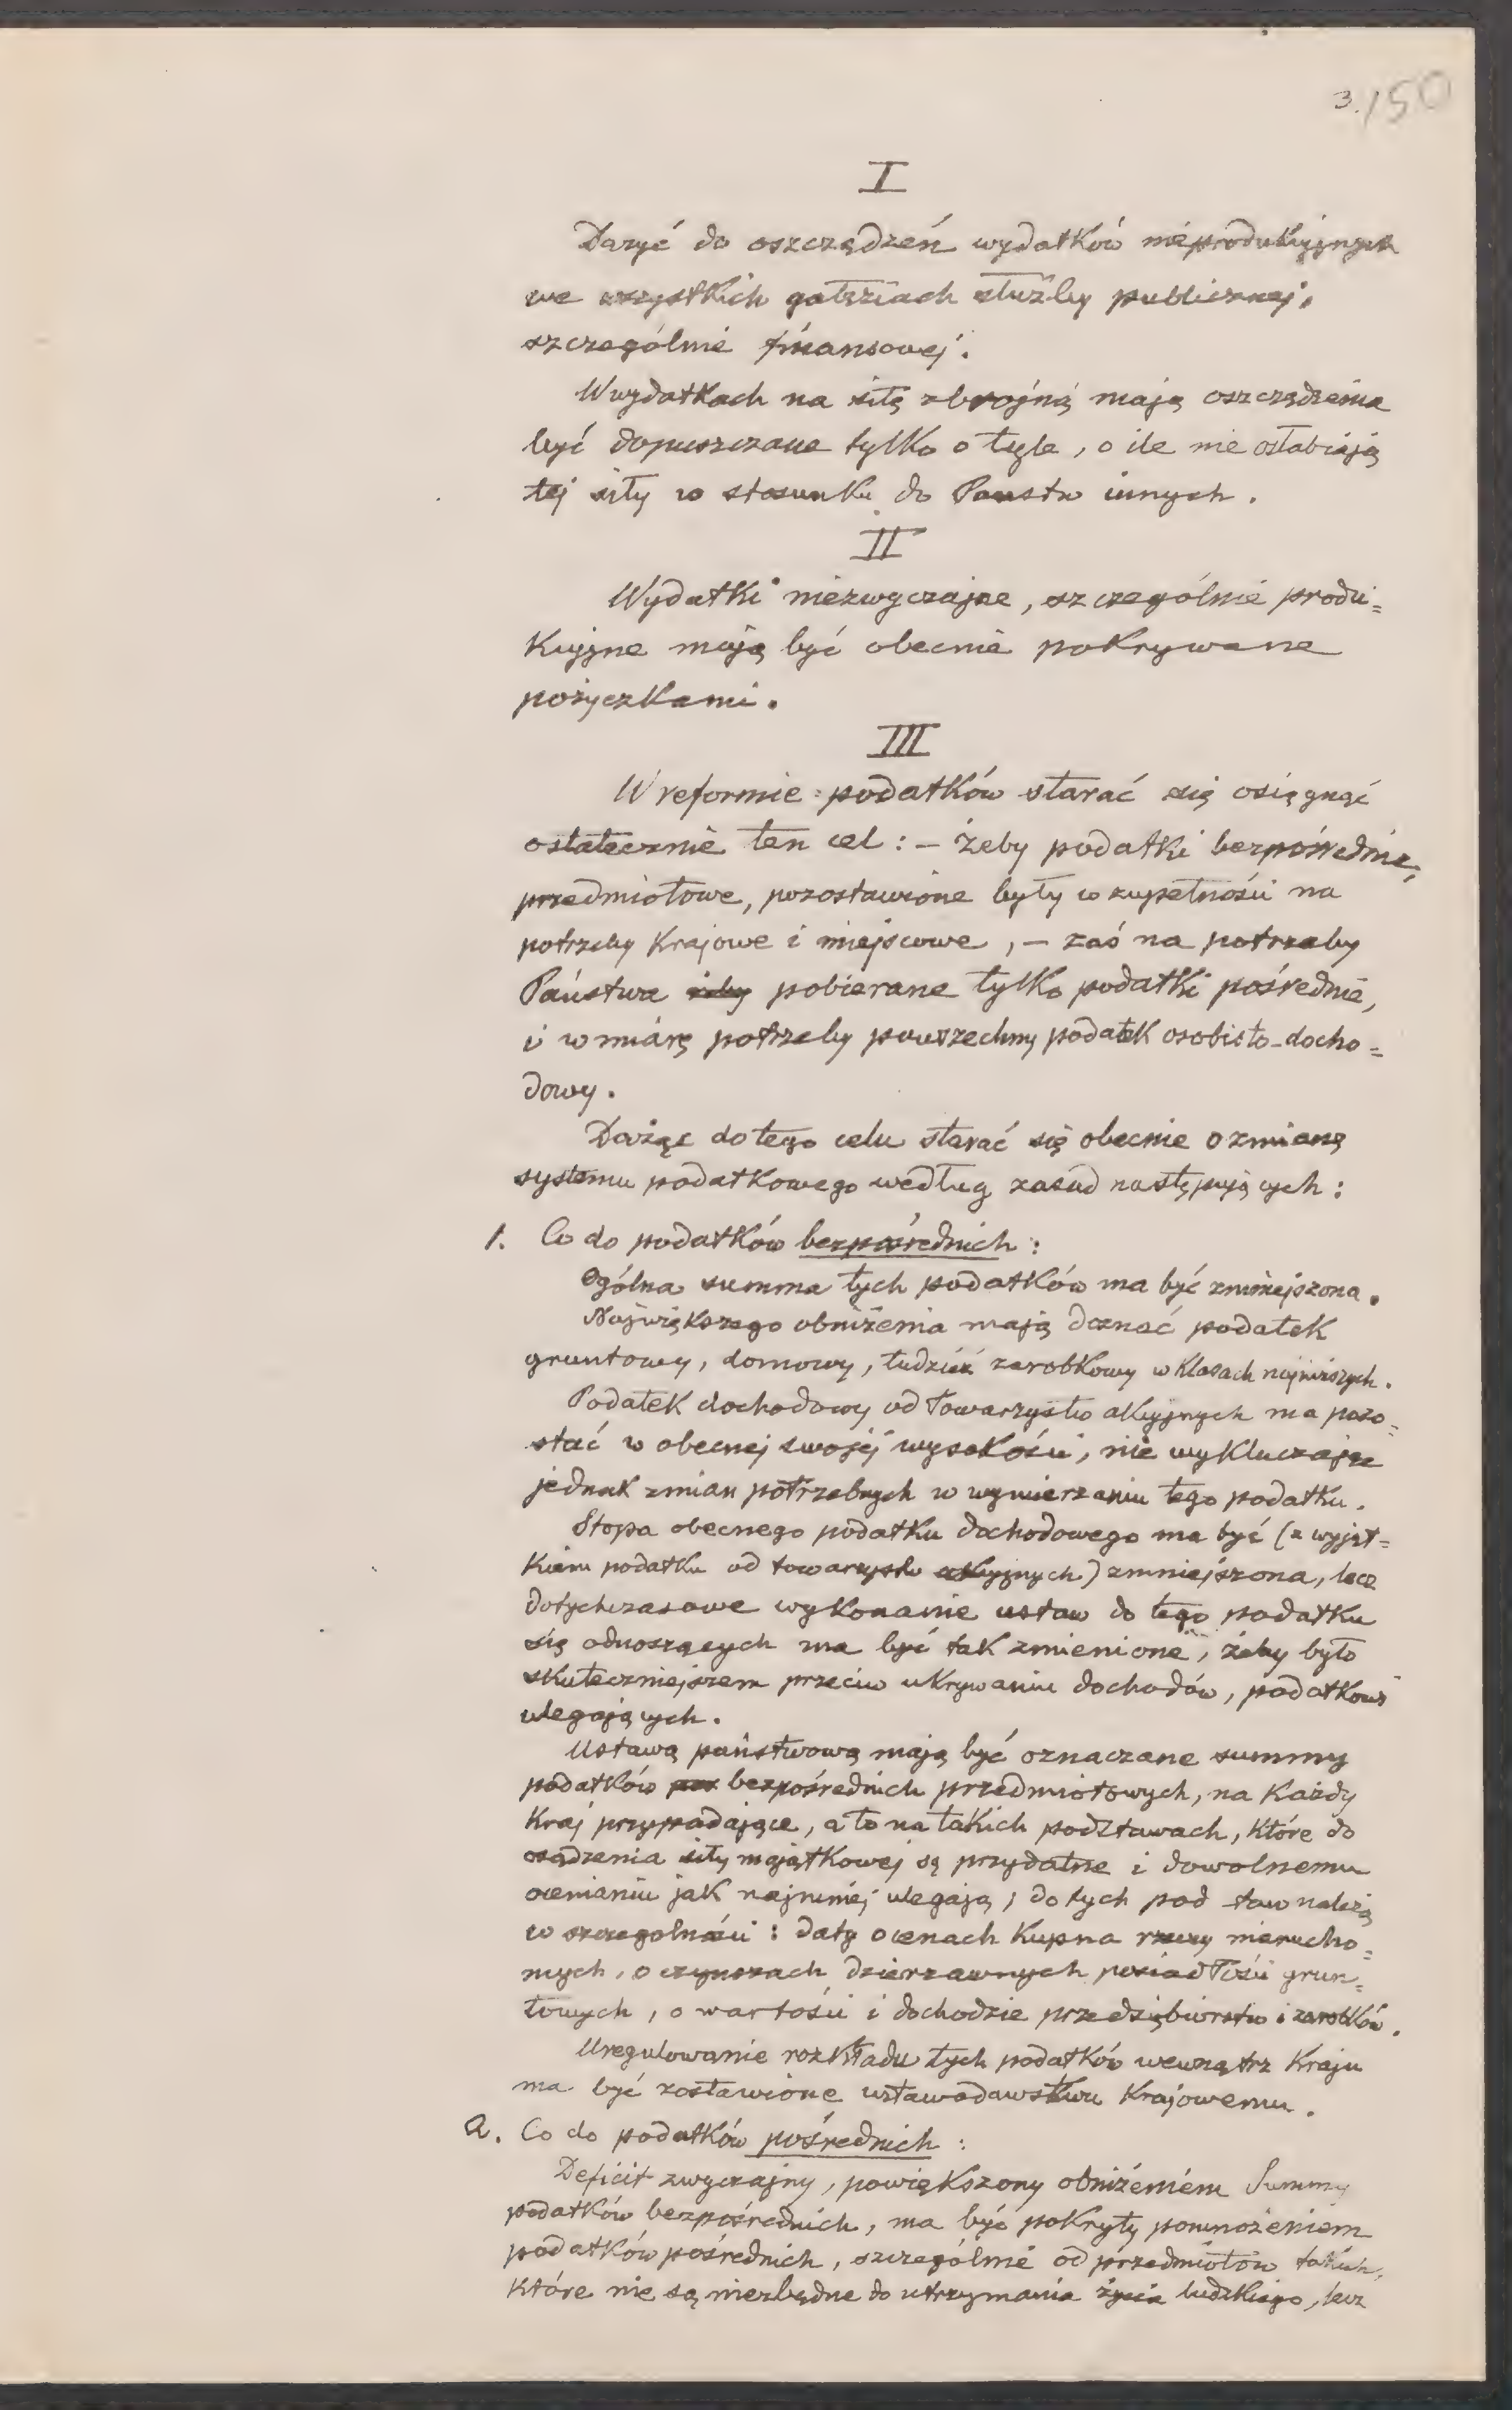 3./150
I
Dążyć do oszczędzeń wydatków nieprodukcyjnych
we wszystkich gałęziach służby publicznej,
szczególnie finansowej.
W wydatkach na siłę zbrojną mają oszczędzenia
być dopuszczane tylko o tyle, o ile nie osłabiają
tej siły w stosunku do Państw innych.
II
Wydatki niezwyczajne, szczególnie produ=
kcyjne mają być obecnie pokrywane
pożyczkami.
III
W reformie podatków starać się osięgnąć
ostatecznie ten cel: – żeby podatki bezpośrednie,
przedmiotowe, pozostawione były w zupełności na
potrzeby Krajowe i miejscowe, – zaś na potrzeby
Państwa żeby pobierane tylko podatki pośrednie,
i w miarę potrzeby powszechny podatek osobisto-docho=
dowy.
Dążąc do tego celu starać się obecnie o zmianę
systemu podatkowego według zasad następujących:
1. Co do podatków bezpośrednich:
Ogólna summa tych podatków ma być zmniejszona.
Największego obniżenia mają doznać podatek
gruntowy, domowy, tudzież zarobkowy w Klasach najniższych.
Podatek dochodowy od Towarzystw akcyjnych ma pozo=
stać w obecnej swojej wysokości, nie wykluczając
jednak zmian potrzebnych w wymierzaniu tego podatku.
Stopa obecnego podatku dochodowego ma być (z wyjąt=
kiem podatku od towarzystw akcyjnych) zmniejszona, lecz
dotychczasowe wykonanie ustaw do tego podatku
się odnoszących ma być tak zmienione, żeby było
skuteczniejszem przeciw ukrywaniu dochodów, podatkowi
ulegających.
Ustawą państwową mają być oznaczane summy
podatków bezpośrednich przedmiotowych, na Każdy
Kraj przypadające, a to na takich podstawach, które do
osądzenia siły majątkowej są przydatne i dowolnemu
ocenianiu jak najmniej ulegają; do tych podstaw należą
w szczególności: daty o cenach Kupna rzeczy nierucho=
mych, o czynszach dzierzawnych posiadłości grun=
towych, o wartości i dochodzie przedsiębiorstw i zarobków.
Uregulowanie rozkładu tych podatków wewnątrz Kraju
ma być zostawione ustawodawstwu Krajowemu.
2. Co do podatków pośrednich:
Deficit zwyczajny, powiększony obniżeniem Summy
podatków bezpośrednich, ma być pokryty pomnożeniem
podatków pośrednich, szczególnie od przedmiotów takich,
które nie są niezbędne do utrzymania życia ludzkiego, lecz